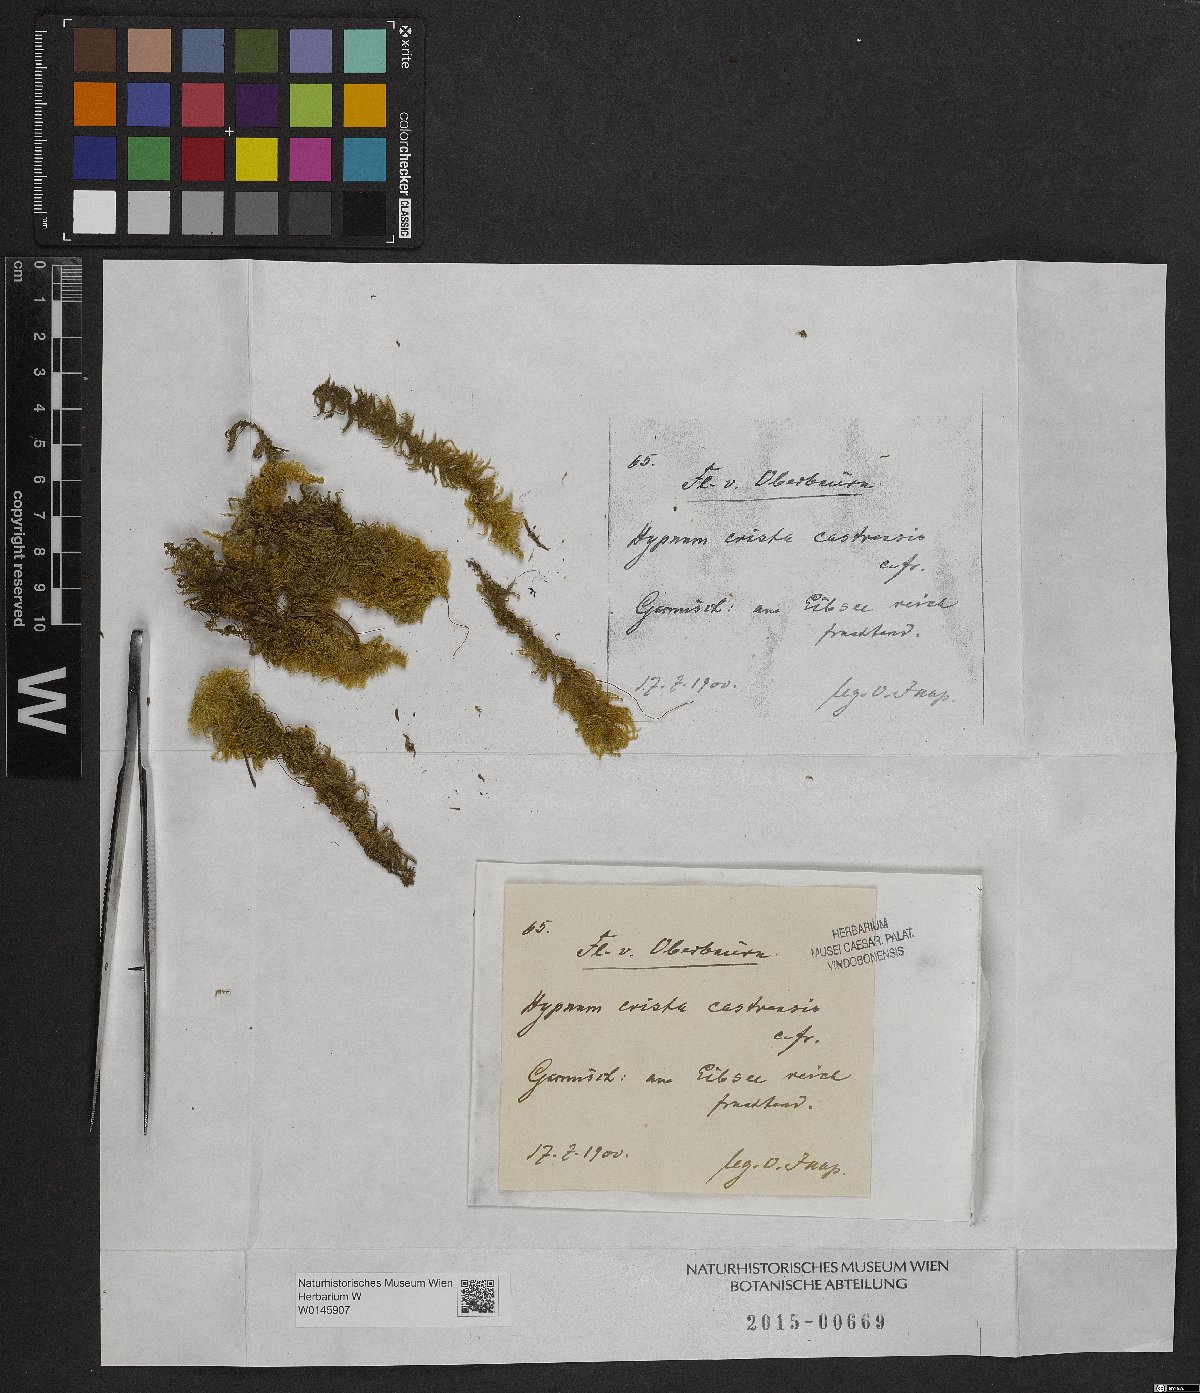 x-rite
colorchecker CLASSIC
mm
0 1 2 3 4 5 6 7 8 9 10
cm
copyright reserved
W
65.
Fl. v. Oberbaiern
Hypnum crista castrensis
c. fr.
Garmisch: am Eibsee reich
fruchtend.
17. 7. 1900.
leg. O. Jaap.
65.
Fl. v. Oberbaiern
HERBARIUM
MUSEI CAESAR. PALAT.
VINDOBONENSIS
Hypnum crista castrensis
c. fr.
Garmisch: am Eibsee reich
fruchtend.
17. 7. 1900.
leg. O. Jaap.
Naturhistorisches Museum Wien
Herbarium W
W0145907
NATURHISTORISCHES MUSEUM WIEN
BOTANISCHE ABTEILUNG
2015-00669